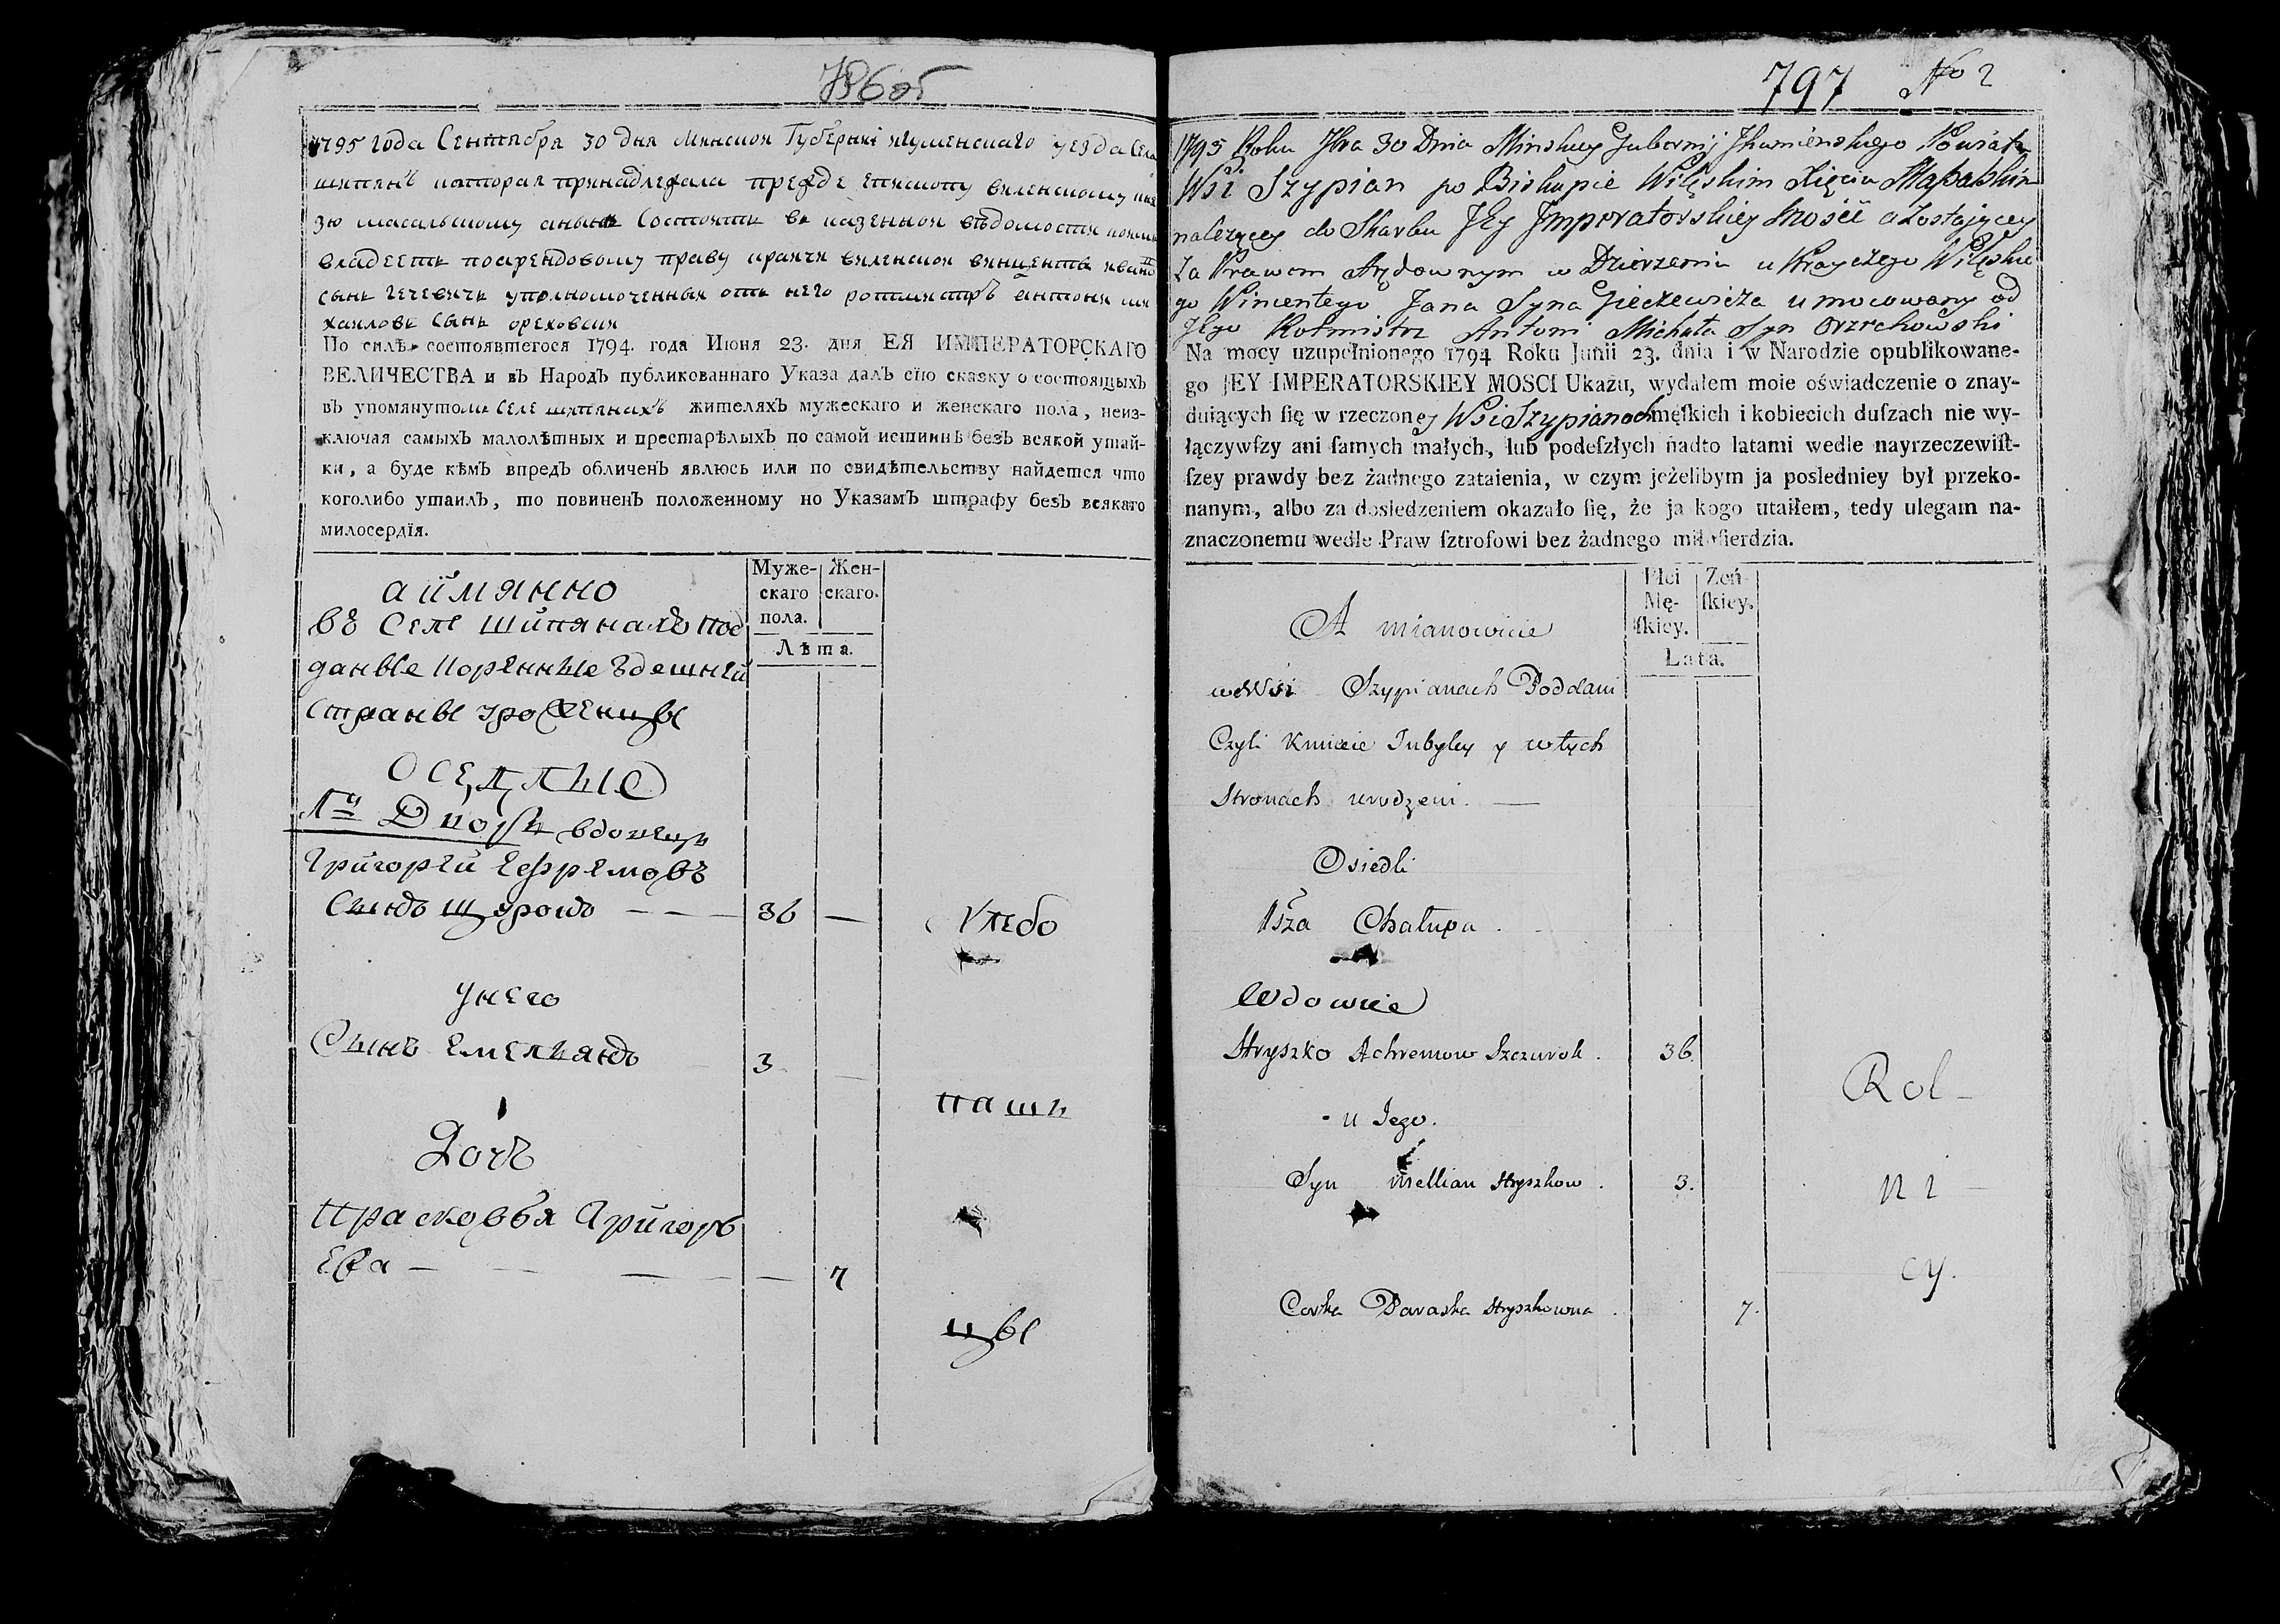 796об
1795 года Сентября 30 дня Минской Губернiи игуменскаго уезда Села
шипянъ которая принадлежала прежде епископу виленскому кня
зю масальскому а ныне Состоитъ въ казенной въдомости коимъ
владеетъ поарендовому праву крайчи виленской винцентъ ивановъ
сынъ гечевичъ уполномоченный отъ него ротмистръ антони ми
хаиловъ сынъ ореховски
По силѣ состоявшегося 1794. года Июня 23. дня ЕЯ ИМПЕРАТОРСКАГО
ВЕЛИЧЕСТВА и въ Народъ публикованнаго Указа далъ сїю сказку о состоящыхъ
въ упомянутомъ Селе шипянахъ жителяхъ мужескаго и женскаго пола, неиз-
ключая самыхъ малолѣтныхъ и престарѣлыхъ по самой истиннѣ безъ всякой утай-
ки, а буде кѣмъ впредъ обличенъ явлюсь или по свидѣтельству найдется что
коголибо утаилъ, то повиненъ положенному по Указамъ штрафу безъ всякаго
милосердїя.
Муже-
скаго
пола.
Жен-
скаго.
Лѣта.
а иймянно
въ Селе Шипянахъ под
даные коренные здешней
Страны уроженцы
Оседлые
1й Дворъ вдовецъ
Григорей Ефремовъ
Сынъ щурокъ — — — 36 —
хлебо
унего
Сынъ Емельянъ 3
паш
Дочъ
Прасковья Григорь
Ева — — — — 7
цы
797 No 2
1795 Roku 7bra 30 Dnia Minskiey Gubernij Ihumienskiego Powiatu
Wsi Szypian po Biskupie Wileńskim Xięciu Massalskim
należącey do Skarbu Jey Jmperatorskiey Mości a zostaiącey
za Prawem Arędownym w Dzierzeniu u Krayczego Wileńskie
go Wincentego Jana Syna Gieczewicza umocowany od
Jego Rotmistrz Antoni Michała Syn Orzechowski
Na mocy uzupełnionego 1794 Roku Junii 23. dnia i w Narodzie opublikowane-
go JEY IMPERATORSKIEY MOSCI Ukazu, wydałem moie oświadczenie o znay-
duiących ſię w rzeczoney Wsi Szypianach męſkich i kobiecich duſzach nie wy-
łączywſzy ani ſamych małych, lub podeſzłych nadto latami wedle nayrzeczewiſt-
ſzey prawdy bez żadnego zataienia, w czym jeżelibym ja posledniey był przeko-
nanym, albo za dosledzeniem okazało ſię, że ja kogo utaiłem, tedy ulegam na-
znaczonemu wedle Praw ſztrofowi bez żadnego miłoſierdzia.
Płci
Mę-
ſkiey.
Zeń-
ſkiey.
Lata.
A mianowicie
we Wsi Szypianach Poddani
Czyli Kmiecie Tubylcy y w tych
Stronach urodzeni. —
Osiedli
1sza Chałupa
Wdowiec
Hryszko Achremow Szczurok . 36.
Rol-
u Jego.
Syn Mellian Hryszkow . 3.
ni-
Corka Paraska Hryszkowna . 7.
cy.